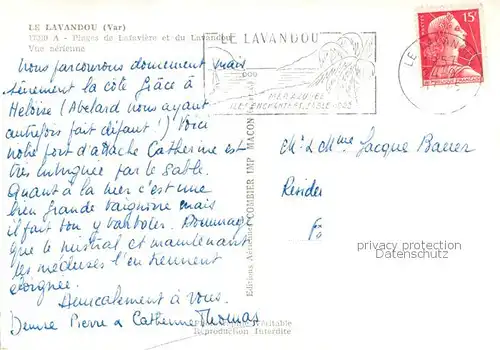 LE LAVANDOU (Var)
A - Plages de Lafavière et du Lavandou
Vue aérienne
Nous parcourons doucement mais
sûrement la côte grâce à
Heloïse (Abelard nous ayant
autrefois fait défaut !) Voici
notre port d'attache Catherine est
très intriguée par le sable.
Quant à la mer c'est une
bien grande baignoire mais
il fait bon y barboter. Dommage
que le mistral et maintenant
les méduses l'en tiennent
éloignée.
Amicalement à vous.
Denise Pierre & Catherine Thomas
Editions Aériennes COMBIER IMP MACON
véritable
Reproduction Interdite
LE LAVANDOU
MER SOLEIL
ILES ENCHANTEES SABLE
15F
LE
M. & Mme Jacque Bauer
Résider
Fo
privacy protection
Datenschutz